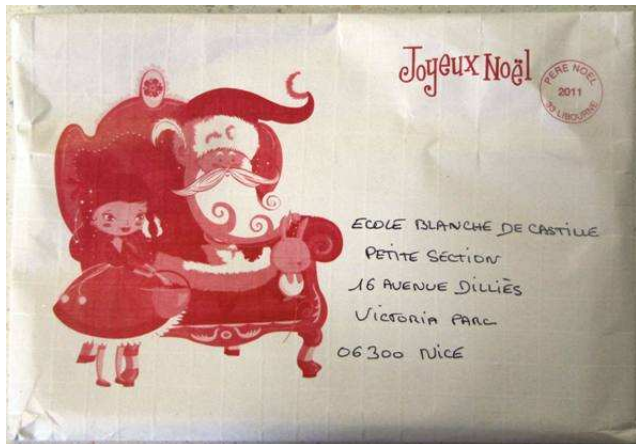 Joyeux Noël
PERE NOEL
2011
33 LIBOURNE
ECOLE BLANCHE DE CASTILLE
PETITE SECTION
16 AVENUE DILLIÈS
VICTORIA PARC
06300 NICE